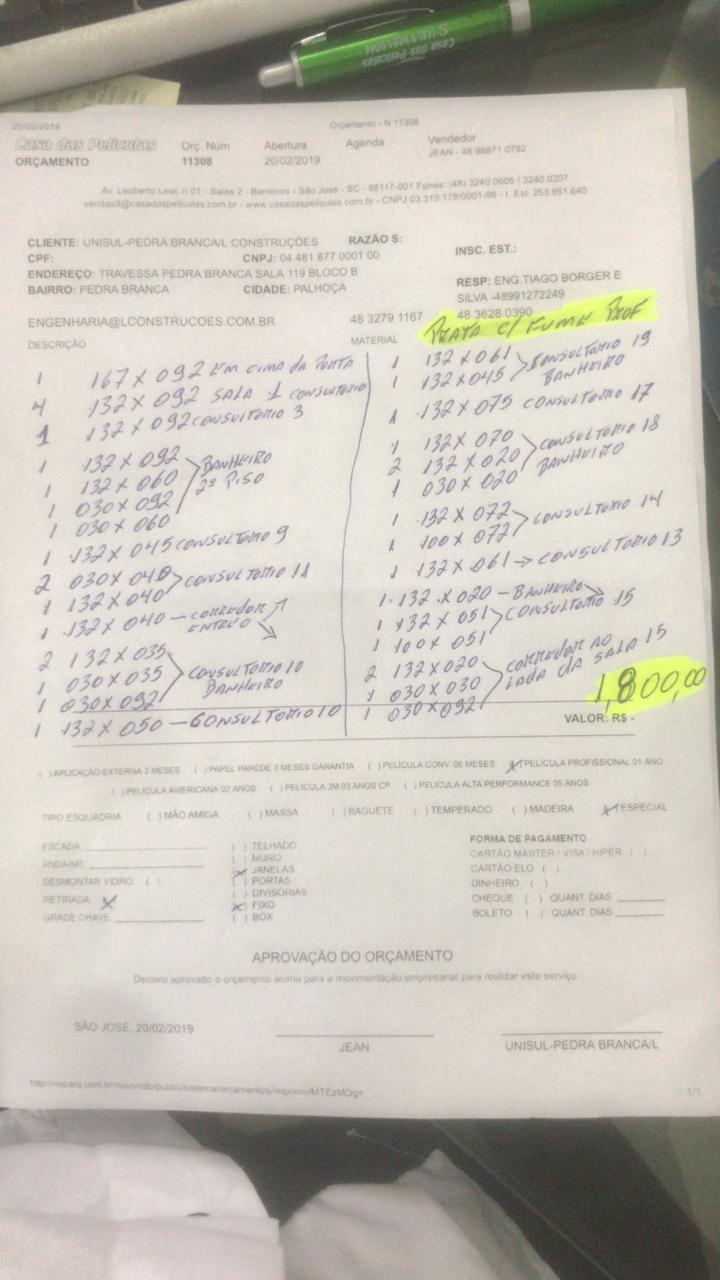 Casa das Películas
(48) 3681 0044
20/02/2019 Orçamento - N 11308
Casa das Películas Orç. Num Abertura Agenda Vendedor
ORÇAMENTO 11308 20/02/2019 JEAN - 48 98871 0792
Av. Leoberto Leal, n 01 - Salas 2 - Barreiros - São José - SC - 88117-001 Fones: (48) 3240.0605 / 3240.0207
vendas3@casadaspeliculas.com.br - www.casadaspeliculas.com.br - CNPJ 03.319.178/0001-98 - I. Est. 253.951.640
CLIENTE: UNISUL-PEDRA BRANCA/L CONSTRUÇÕES RAZÃO S: INSC. EST.:
CPF: CNPJ: 04 481 877 0001 00
ENDEREÇO: TRAVESSA PEDRA BRANCA SALA 119 BLOCO B RESP: ENG.TIAGO BORGER E
BAIRRO: PEDRA BRANCA CIDADE: PALHOÇA SILVA -48991272249
ENGENHARIA@LCONSTRUCOES.COM.BR 48 3279 1167 48 3628 0390
PRATA C/ FUME PROF
DESCRIÇÃO MATERIAL
1 167 X 092 EM CIMA DA PORTA
4 132 X 092 SALA 1 CONSULTORIO
1 132 X 092 CONSULTORIO 3
1 132 X 092 BANHEIRO
1 132 X 060 2º PISO
1 030 X 092
1 030 X 060
1 132 X 045 CONSULTORIO 9
2 030 X 040 CONSULTORIO 11
1 132 X 040
1 132 X 040 - CORREDOR
ENTRE
2 132 X 035
1 030 X 035 CONSULTORIO 10
1 030 X 092 BANHEIRO
1 132 X 050 - CONSULTORIO 10
1 132 X 061 CONSULTORIO 19
1 132 X 045 BANHEIRO
1 132 X 075 CONSULTORIO 17
1 132 X 070 CONSULTORIO 18
2 132 X 020 BANHEIRO
1 030 X 020
1 132 X 072 CONSULTORIO 14
1 100 X 072
1 132 X 061 → CONSULTORIO 13
1 132 X 020 - BANHEIRO
1 132 X 051 CONSULTORIO 15
1 100 X 051
2 132 X 020 CORREDOR AO
1 030 X 030 LADA DA SALA 15
1 030 X 092
1,800,00
VALOR: R$ -
( ) APLICAÇÃO EXTERNA 3 MESES ( ) PAPEL PAREDE 3 MESES GARANTIA ( ) PELÍCULA CONV. 06 MESES (X) PELÍCULA PROFISSIONAL 01 ANO
( ) PELICULA AMERICANA 02 ANOS ( ) PELICULA 3M 03 ANOS CP ( ) PELICULA ALTA PERFORMANCE 05 ANOS
TIPO ESQUADRIA ( ) MÃO AMIGA ( ) MASSA ( ) BAGUETE ( ) TEMPERADO ( ) MADEIRA (X) ESPECIAL
ESCADA: ( ) TELHADO
ANDAIME: ( ) MURO
DESMONTAR VIDRO: ( ) (X) JANELAS
RETIRADA X ( ) PORTAS
GRADE CHAVE ( ) DIVISÓRIAS
(X) FIXO
( ) BOX
FORMA DE PAGAMENTO
CARTÃO MASTER / VISA / HIPER ( )
CARTÃO ELO ( )
DINHEIRO ( )
CHEQUE ( ) QUANT. DIAS
BOLETO ( ) QUANT. DIAS
APROVAÇÃO DO ORÇAMENTO
Declaro aprovado o orçamento acima para a movimentação empresarial para realizar este serviço
SÃO JOSÉ, 20/02/2019
JEAN UNISUL-PEDRA BRANCA/L
1/1